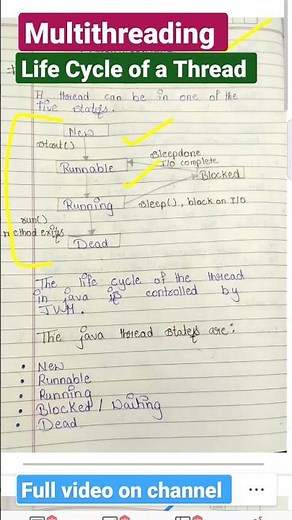 Multithreading
Life Cycle of a Thread
A thread can be in one of the
five states.
New
start()
Sleepdone
I/O complete
Runnable
Blocked
Running
Sleep(), block on I/O
run()
method exits
Dead
The life cycle of the thread
in java is controlled by
JVM.
The java thread states are:
• New
• Runnable
• Running
• Blocked / Waiting
• Dead
Full video on channel
...